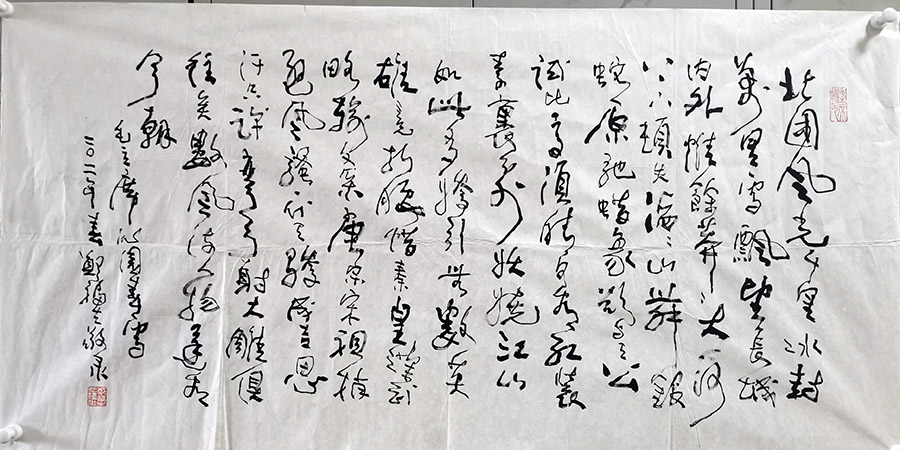 北国风光千里冰封
萬里雪飄望長城
内外惟餘莽〻大河
上下頓失滔〻山舞銀
蛇原馳蜡象欲与天公
試比高须晴日看红装
素裹分外妖娆江山
如此多娇引無數英
雄竞折腰惜秦皇漢武
略输文采唐宗宋祖稍
逊风骚一代天骄成吉思
汗只識弯弓射大雕俱
往矣數風流人物還看
今朝
毛主席沁園春雪
二〇二一年春